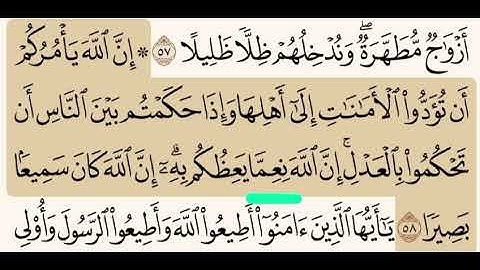 أَزْوَٰجٌ مُّطَهَّرَةٌ ۖ وَنُدْخِلُهُمْ ظِلًّا ظَلِيلًا ٥٧ ۞ إِنَّ ٱللَّهَ يَأْمُرُكُمْ
أَن تُؤَدُّوا۟ ٱلْأَمَٰنَٰتِ إِلَىٰٓ أَهْلِهَا وَإِذَا حَكَمْتُم بَيْنَ ٱلنَّاسِ أَن
تَحْكُمُوا۟ بِٱلْعَدْلِ ۚ إِنَّ ٱللَّهَ نِعِمَّا يَعِظُكُم بِهِۦٓ ۗ إِنَّ ٱللَّهَ كَانَ سَمِيعًۢا
بَصِيرًا ٥٨ يَٰٓأَيُّهَا ٱلَّذِينَ ءَامَنُوٓا۟ أَطِيعُوا۟ ٱللَّهَ وَأَطِيعُوا۟ ٱلرَّسُولَ وَأُو۟لِى